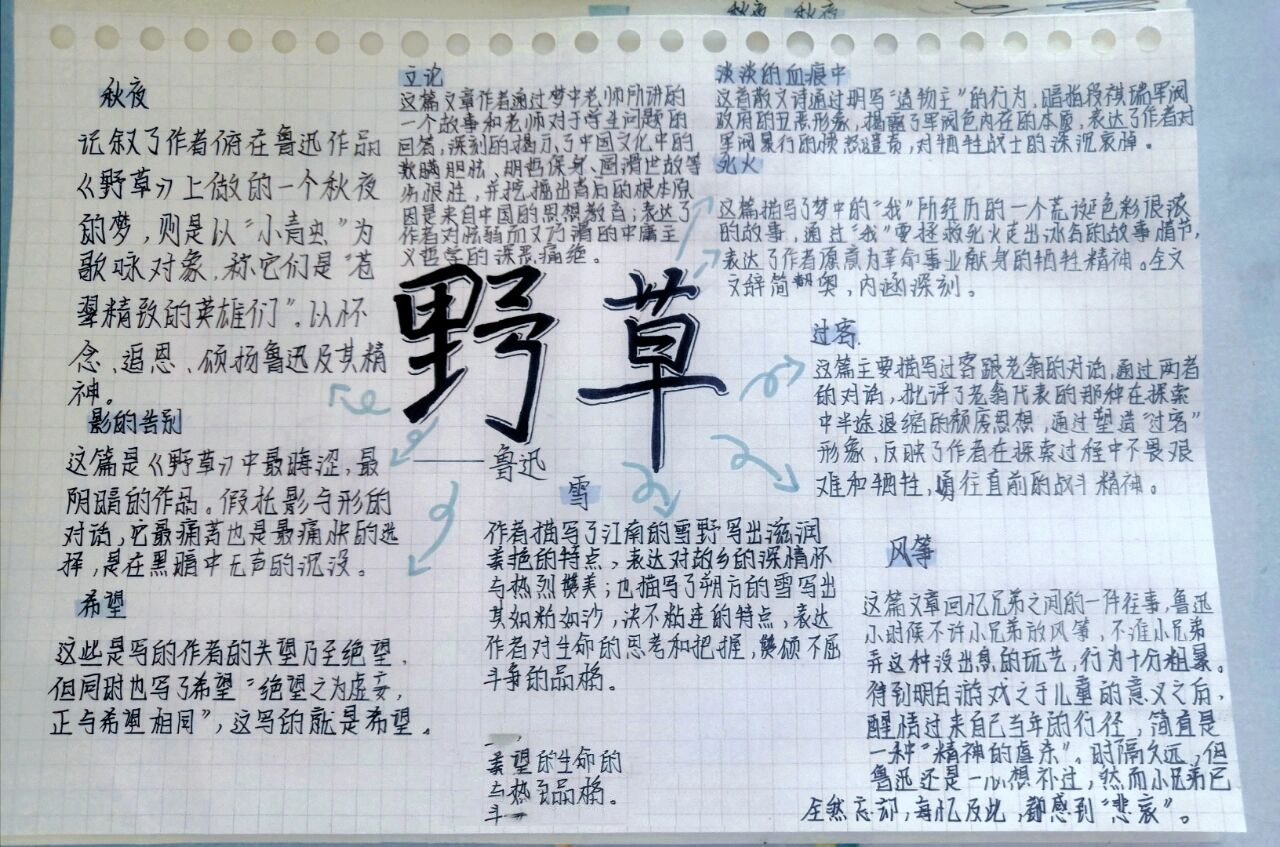 秋夜 秋夜
秋夜
记叙了作者俯在鲁迅作品
《野草》上做的一个秋夜
的梦，则是以“小青虫”为
歌咏对象，称它们是“苍
翠精致的英雄们”。以怀
念、追思、颂扬鲁迅及其精
神。
影的告别
这篇是《野草》中最晦涩，最
阴暗的作品。假托影与形的
对话，它最痛苦也是最痛快的选
择，是在黑暗中无声的沉没。
希望
这些是写的作者的失望乃至绝望，
但同时也写了希望“绝望之为虚妄，
正与希望相同”，这写的就是希望。
立论
这篇文章作者通过梦中老师所讲的
一个故事和老师对于学生问题的
回答，深刻的揭示了中国文化中的
欺瞒胆怯、明哲保身、圆滑世故等
劣根性，并挖掘出背后的根本原
因是来自中国的思想教育；表达了
作者对脆弱而又巧滑的中庸主
义哲学的深恶痛绝。
野草
——鲁迅
雪
作者描写了江南的雪野写出滋润
美艳的特点，表达对故乡的深情怀
与热烈赞美；也描写了朔方的雪写出
其如粉如沙，决不粘连的特点，表达
作者对生命的思考和把握，赞颂不屈
斗争的品格。
美望的生命的
与热品格。
斗
淡淡的血痕中
这首散文诗通过明写“造物主”的行为，暗指段祺瑞军阀
政府的丑恶形象，揭露了军阀色内在的本质，表达了作者对
军阀暴行的愤怒谴责，对牺牲战士的深沉哀悼。
死火
这篇描写了梦中的“我”所经历的一个荒诞色彩很浓
的故事，通过“我”要拯救死火走出冰谷的故事情节，
表达了作者愿意为革命事业献身的牺牲精神。全文
文辞简奥，内涵深刻。
过客
这篇主要描写过客跟老翁的对话，通过两者
的对话，批评了老翁代表的那种在探索
中半途退缩的颓废思想，通过塑造“过客”
形象，反映了作者在探索过程中不畏艰
难和牺牲，勇往直前的战斗精神。
风筝
这篇文章回忆兄弟之间的一件往事，鲁迅
小时候不许小兄弟放风筝，不准小兄弟
弄这种没出息的玩艺，行为十分粗暴。
得到明白游戏之于儿童的意义之后，
醒悟过来自己当年的行径，简直是
一种“精神的虐杀”。时隔久远，但
鲁迅还是一心想补过，然而小兄弟已
全然忘却，每忆及此，都感到“悲哀”。